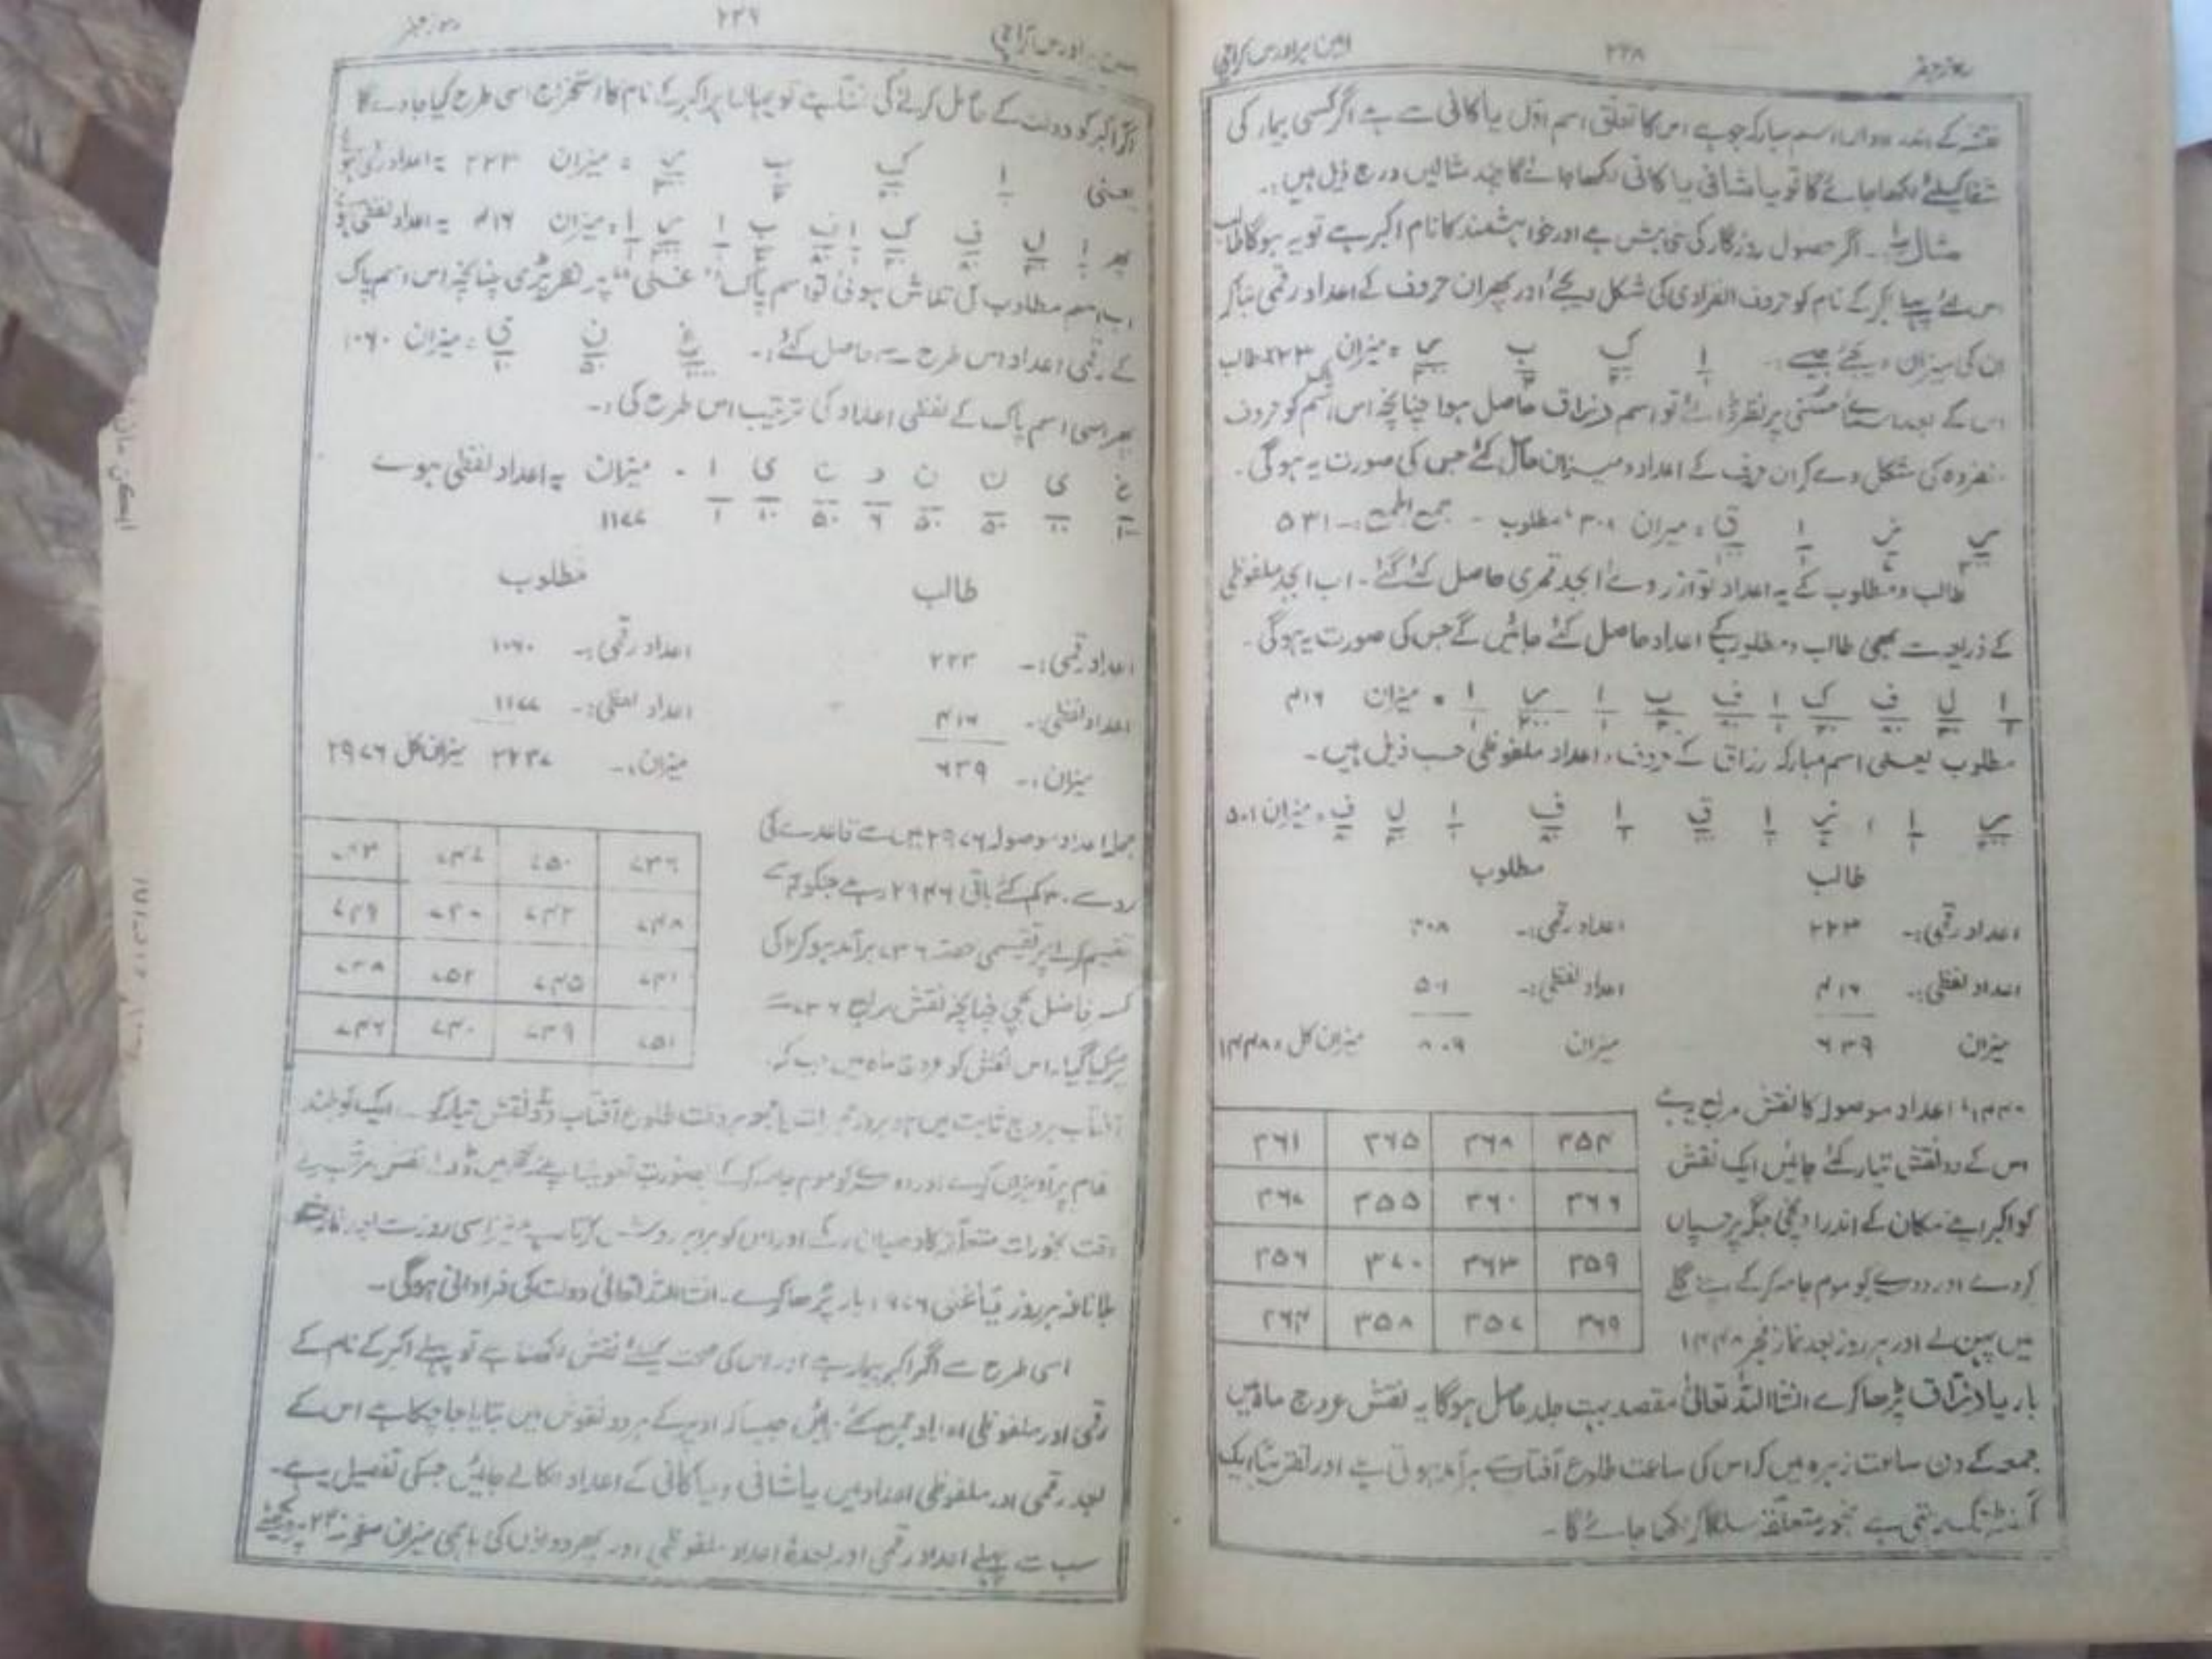 رموز جفر ۲۳۸ امین برادرس کراچی
نقش کے اسم مبارکہ جو ہے اس کا تعلق اسم اوّل یا کافی سے ہے اگر کسی بیمار کی
شفا کیلئے لکھا جائے گا تو یا شافی یا کافی لکھا جائے گا چند مثالیں درج ذیل ہیں:۔
مثال ۱:۔ اگر حصول روزگار کی خواہش ہے اور خواہشمند کا نام اکبر ہے تو یہ ہوگا طالب
اس لئے پہلے اکبر کے نام کو حروف انفرادی کی شکل دیجئے اور پھر ان حروف کے اعداد رقمی بنا کر
ان کی میزان دیجئے جیسے:۔ ا ک ب ر = میزان ۲۲۳ طالب
اس کے بعد اسمائے حسنٰی پر نظر ڈالئے تو اسم رزاق حاصل ہوا چنانچہ اس اسم کو حروف
منفردہ کی شکل دے کر ان حروف کے اعداد و میزان حاصل کئے جس کی صورت یہ ہوگی۔
ر ز ا ق = میزان ۳۰۸ مطلوب - جمع الجمع:۔ ۵۳۱
طالب و مطلوب کے یہ اعداد تو از روئے ابجد قمری حاصل کئے گئے۔ اب ابجد ملفوظی
کے ذریعہ سے بھی طالب و مطلوب کے اعداد حاصل کئے جائیں گے جس کی صورت یہ ہوگی۔
ا ل ف ک ا ف ب ا ر ا = میزان ۴۱۶
مطلوب یعنی اسم مبارکہ رزاق کے حروف و اعداد ملفوظی حسب ذیل ہیں۔
ر ا ، ز ا ق ا ف ا ل ف = میزان ۵۰۱
طالب مطلوب
اعداد رقمی:۔ ۲۲۳ اعداد رقمی:۔ ۳۰۸
اعداد لفظی:۔ ۴۱۶ اعداد لفظی:۔ ۵۰۱
میزان ۶۳۹ میزان ۸۰۹ میزان کل = ۱۴۴۸
۱۴۴۸ اعداد موصولہ کا نقش مربع یہ ہے
اس کے دو نقش تیار کئے جائیں ایک نقش
کو اکبر اپنے مکان کے اندر اونچی جگہ پر چسپاں
کر دے اور دوسرے کو موم جامہ کر کے اپنے گلے
میں پہن لے اور ہر روز بعد نماز فجر ۱۴۴۸
۳۵۴ ۳۶۸ ۳۶۵ ۳۶۱
۳۶۶ ۳۶۰ ۳۵۵ ۳۶۷
۳۵۹ ۳۶۳ ۳۷۰ ۳۵۶
۳۶۹ ۳۵۷ ۳۵۸ ۳۶۴
بار یا رزاق پڑھا کرے انشااللہ تعالیٰ مقصد بہت جلد حاصل ہوگا یہ نقش عروج ماہ میں
جمعہ کے دن ساعت زہرہ میں کہ اس کی ساعت طلوع آفتاب سے برآمد ہوتی ہے اور تقریباً ایک
گھنٹہ تک رہتی ہے بخور متعلقہ سلگا کر لکھا جائے گا۔
رموز جفر ۲۳۹ امین برادرس کراچی
اگر اکبر کو دولت کے حاصل کرنے کی تمنا ہے تو یہاں پر اکبر کے نام کا استخراج اسی طرح کیا جاوے گا
یعنی ا ک ب ر = میزان ۲۲۳ یہ اعداد رقمی ہوئے
پھر ا ل ف ک ا ف ب ا ر ا = میزان ۴۱۶ یہ اعداد لفظی ہوئے
اب اسم مطلوب کی تلاش ہوئی تو اسم پاک "غنی" پر نظر پڑی چنانچہ اس اسم پاک
کے رقمی اعداد اس طرح سے حاصل کئے:۔ غ ن ی = میزان ۱۰۶۰
پھر اسی اسم پاک کے لفظی اعداد کی ترتیب اس طرح کی:۔
غ ی ن ن و ن ی ا - میزان ۱۱۷۷ یہ اعداد لفظی ہوئے
طالب مطلوب
اعداد رقمی:۔ ۲۲۳ اعداد رقمی:۔ ۱۰۶۰
اعداد لفظی:۔ ۴۱۶ اعداد لفظی:۔ ۱۱۷۷
میزان:۔ ۶۳۹ میزان:۔ ۲۲۳۷ میزان کل ۲۹۷۶
جملہ اعداد موصولہ ۲۹۷۶ میں سے قاعدے کی
رو سے ۳۰ کم کئے باقی ۲۹۴۶ رہے جنکو ۴ سے
تقسیم کرنے پر تقسیمی حصہ ۷۳۶ برآمد ہو کر ۲ کی
کسر فاضل بچی چنانچہ نقش مربع ۷۳۶ سے
پر کیا گیا۔ اس نقش کو عروج ماہ میں جب کہ
۷۳۶ ۷۵۰ ۷۴۷ ۷۴۳
۷۴۸ ۷۴۲ ۷۳۷ ۷۴۹
۷۴۱ ۷۴۵ ۷۵۲ ۷۳۸
۷۵۱ ۷۳۹ ۷۴۰ ۷۴۶
آفتاب بروج ثابت میں ہو بروز جمعرات یا جمعہ بروقت طلوع آفتاب دو نقش تیار کرے۔ ایک کو بلند
مقام پر آویزاں کرے اور دوسرے کو موم جامہ کر کے بصورت تعویذ اپنے گلے میں ڈالے نقش مرتب کرتے
وقت بخورات متعلقہ کا دھیان رکھے اور ان کو برابر روشن کرتا رہے نیز اسی روز سے اور نماز
بلا ناغہ ہر روز یا غنی ۱۰۷۶ بار پڑھا کرے۔ انشااللہ تعالیٰ دولت کی فراوانی ہوگی۔
اسی طرح سے اگر اکبر بیمار ہے اور اس کی صحت کیلئے نقش لکھنا ہے تو پہلے اکبر کے نام کے
رقمی اور ملفوظی اعداد جمع کئے جائیں جیسا کہ اوپر کے ہر دو نقوش میں بتایا جا چکا ہے اس کے
بعد رقمی اور ملفوظی اعداد میں یا شافی و یا کافی کے اعداد نکالے جائیں جسکی تفصیل یہ ہے۔
سب سے پہلے اعداد رقمی اور بعدہٗ اعداد ملفوظی اور پھر دونوں کی باہمی میزان صفحہ نمبر ۲۴۰ پر دیکھئے